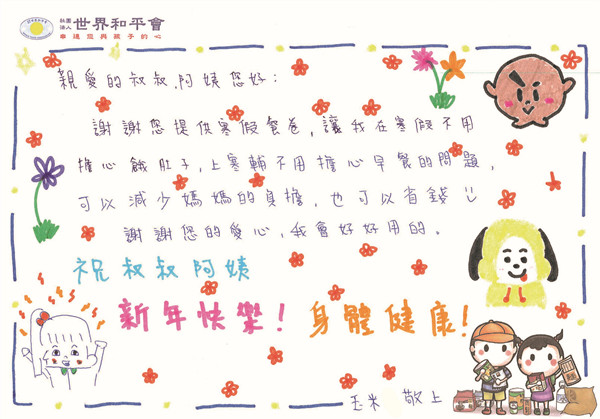 社團法人 世界和平會
串連您與孩子的心
親愛的叔叔、阿姨您好：
謝謝您提供寒假餐卷，讓我在寒假不用
擔心餓肚子，上寒輔不用擔心早餐的問題，
可以減少媽媽的負擔，也可以省錢
謝謝您的愛心，我會好好用的。
祝叔叔阿姨
新年快樂！身體健康！
玉米 敬上